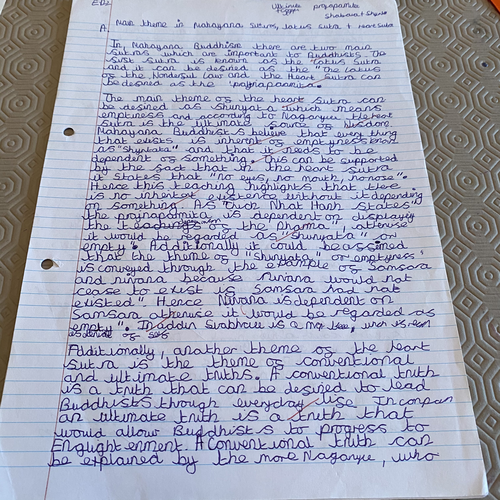 Ultimate prajnapamita
Shunyata + Skandhas
Main theme in Mahayana Sutras, Lotus Sutra + Heart Sutra
In, Mahayana Buddhism there are two main
sutras which are important to Buddhists. The
first sutra is known as the "Lotus Sutra
and it can be defined as the "The Lotus
of the Wonderful Law and the Heart Sutra can
be defined as the 'prajnapamita'.
The main theme of the heart sutra can
be defined as shunyata which means
emptiness and according to Nagarjuna the heart
sutra is the ultimate source of wisdom.
Mahayana Buddhists believe that every thing
that exists is inherent of emptyness known
as "Shunyata" and that it needs to be
dependent of something. This can be supported
by the fact that in the heart sutra
it states that "no eyes, no mouth, no nose".
Hence this teaching highlights that there
is no inherent existence without it depending
on something. As Thich Nhat Hanh states
the prajnapamita is dependent on displaying
the teachings of the Dharma", otherwise
it would be regarded as "shunyata" or
empty". Additionally it could be assumed
that the theme of "shunyata" or emptyness'
is conveyed through the example of Samsara
and nirvana because nirvana would not
cease to exist if Samsara had not
existed". Hence Nirvana is dependent on
Samsara otherwise it would be regarded as
empty".
Additionally, another theme of the heart
Sutra is the theme of conventional
and ultimate truths. A conventional truth
is a truth that can be defined to lead
Buddhists through everyday life. In
an ultimate truth is a truth that
would allow Buddhists to progress to
Englightenment. A Conventional truth can
be explained by the more Nagarjuna, who